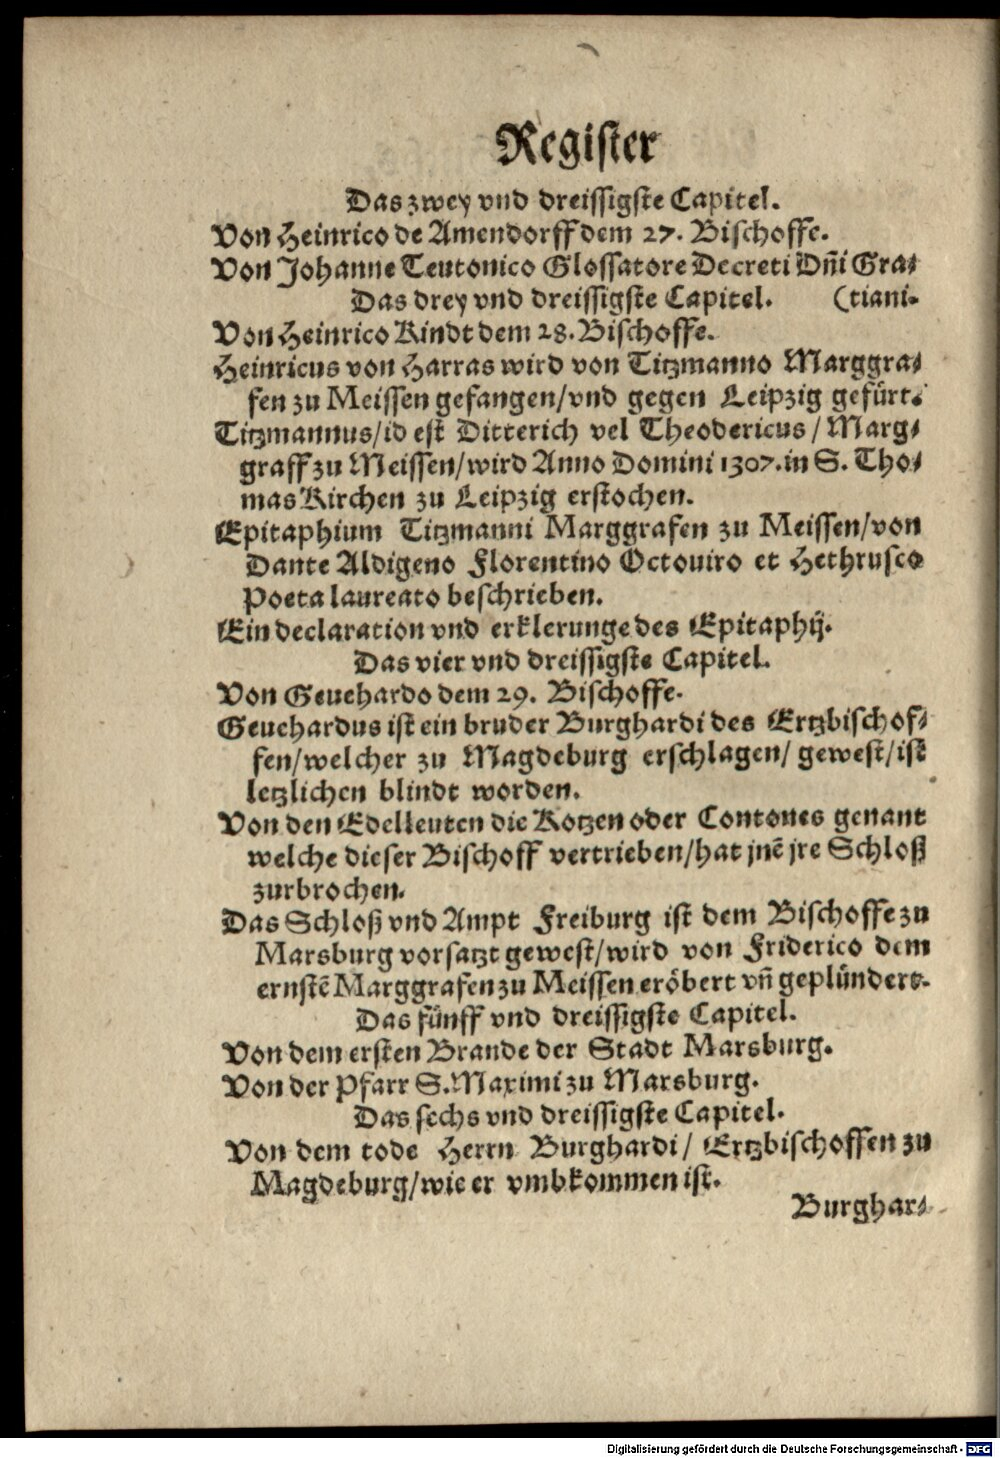 Register
Das zwey vnd dreissigste Capitel.
Von Heinrico de Amendorff dem 27. Bischoffe.
Von Johanne Teutonico Glossatore Decreti Dn̄i Gra⸗
Das drey vnd dreissigste Capitel. (tiani.
Von Heinrico Kindt dem 28. Bischoffe.
Heinricus von Harras wird von Titzmanno Marggra⸗
fen zu Meissen gefangen/vnd gegen Leipzig gefürt.
Titzmannus/id est Ditterich vel Theodericus / Marg⸗
graff zu Meissen/wird Anno Domini 1307. in S. Tho⸗
mas Kirchen zu Leipzig erstochen.
Epitaphium Titzmanni Marggrafen zu Meissen/von
Dante Aldigeno Florentino Octouiro et Hethrusco
Poeta laureato beschrieben.
Ein declaration vnd erklerunge des Epitaphij.
Das vier vnd dreissigste Capitel.
Von Geuehardo dem 29. Bischoffe.
Geuehardus ist ein bruder Burghardi des Ertzbischof⸗
fen/welcher zu Magdeburg erschlagen/ gewest/ist
letzlichen blindt worden.
Von den Edelleuten die Kotzen oder Contones genant
welche dieser Bischoff vertrieben/hat jnē jre Schloß
zurbrochen.
Das Schloß vnd Ampt Freiburg ist dem Bischoffe zu
Marsburg vorsatzt gewest/wird von Friderico dem
ernstē Marggrafen zu Meissen eröbert vn̄ geplündert.
Das fünff vnd dreissigste Capitel.
Von dem ersten Brande der Stadt Marsburg.
Von der Pfarr S. Maximi zu Marsburg.
Das sechs vnd dreissigste Capitel.
Von dem tode Herrn Burghardi/ Ertzbischoffen zu
Magdeburg/wie er vmbkommen ist.
Burghar⸗
Digitalisierung gefördert durch die Deutsche Forschungsgemeinschaft - DFG